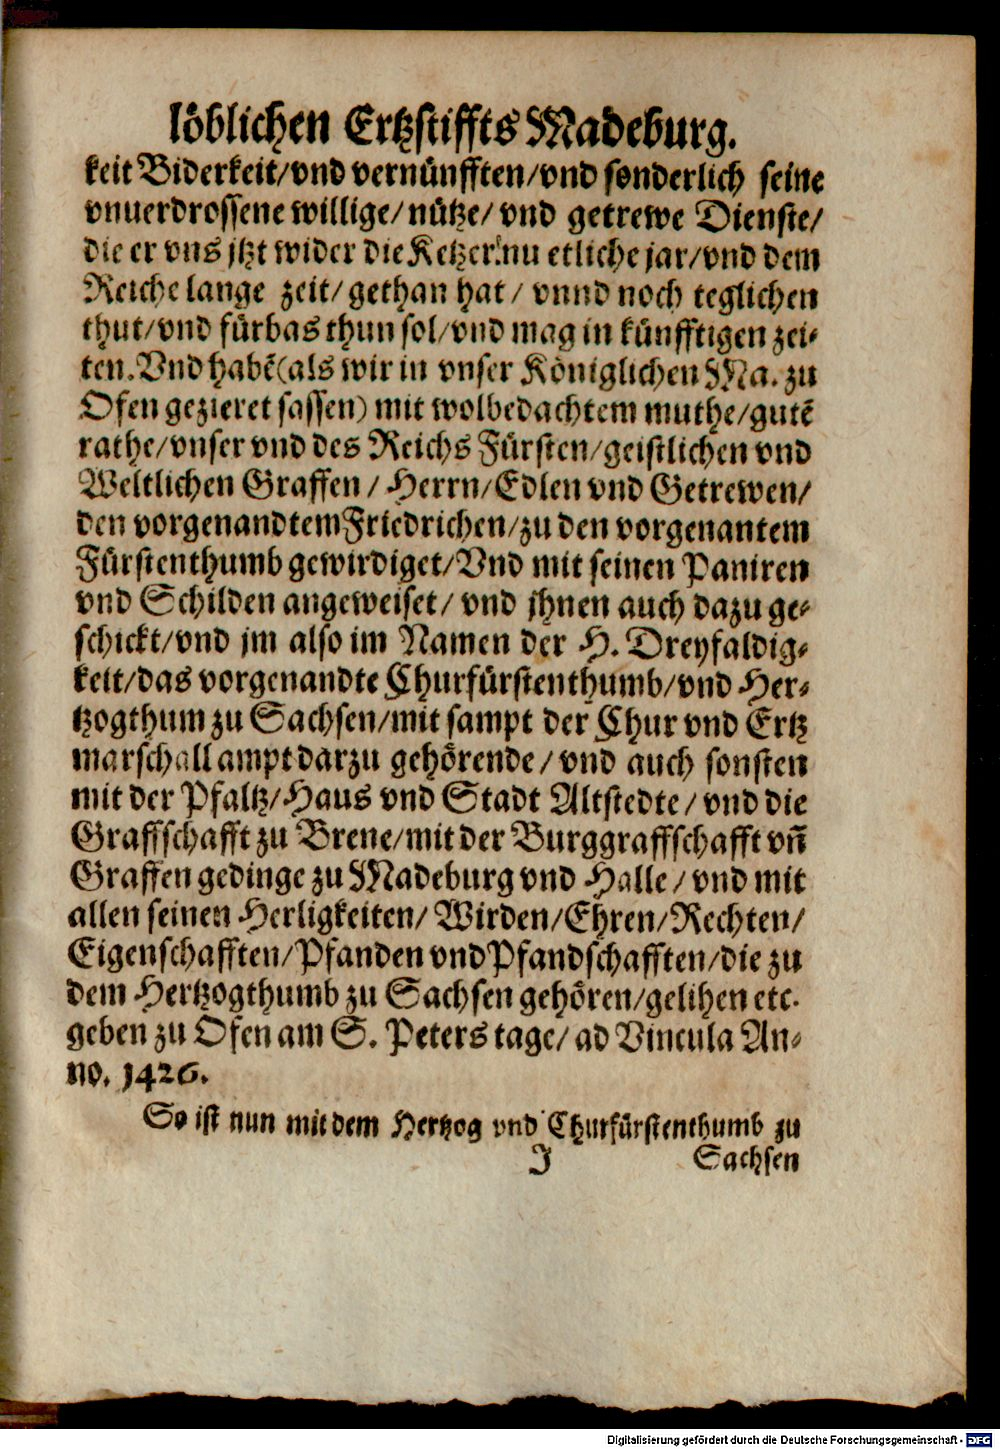 löblichen Ertzstiffts Madeburg.
keit Biderkeit/vnd vernünfften/vnd sonderlich seine
vnuerdrossene willige/ nütze/ vnd getrewe Dienste/
die er vns jtzt wider die Ketzer nu etliche jar/vnd dem
Reiche lange zeit/ gethan hat/ vnnd noch teglichen
thut/vnd fürbas thun sol/vnd mag in künfftigen zei-
ten. Vnd habē(als wir in vnser Königlichen Ma. zu
Ofen gezieret sassen) mit wolbedachtem muthe/gutē
rathe/vnser vnd des Reichs Fürsten/geistlichen vnd
Weltlichen Graffen / Herrn/Edlen vnd Getrewen/
den vorgenandtem Friedrichen/zu den vorgenantem
Fürstenthumb gewirdiget/Vnd mit seinen Paniren
vnd Schilden angeweiset/ vnd jhnen auch dazu ge-
schickt/vnd jm also im Namen der H. Dreyfaldig-
keit/das vorgenandte Churfürstenthumb/vnd Her-
tzogthum zu Sachsen/mit sampt der Chur vnd Ertz
marschall ampt darzu gehörende/ vnd auch sonsten
mit der Pfaltz/Haus vnd Stadt Altstedte/ vnd die
Graffschafft zu Brene/mit der Burggraffschafft vñ
Graffen gedinge zu Madeburg vnd Halle/ vnd mit
allen seinen Herligkeiten/ Wirden/Ehren/Rechten/
Eigenschafften/Pfanden vnd Pfandschafften/die zu
dem Hertzogthumb zu Sachsen gehören/gelihen etc.
geben zu Ofen am S. Peters tage/ ad Vincula An-
no. 1426.
So ist nun mit dem Hertzog vnd Churfürstenthumb zu
J Sachsen
Digitalisierung gefördert durch die Deutsche Forschungsgemeinschaft - DFG